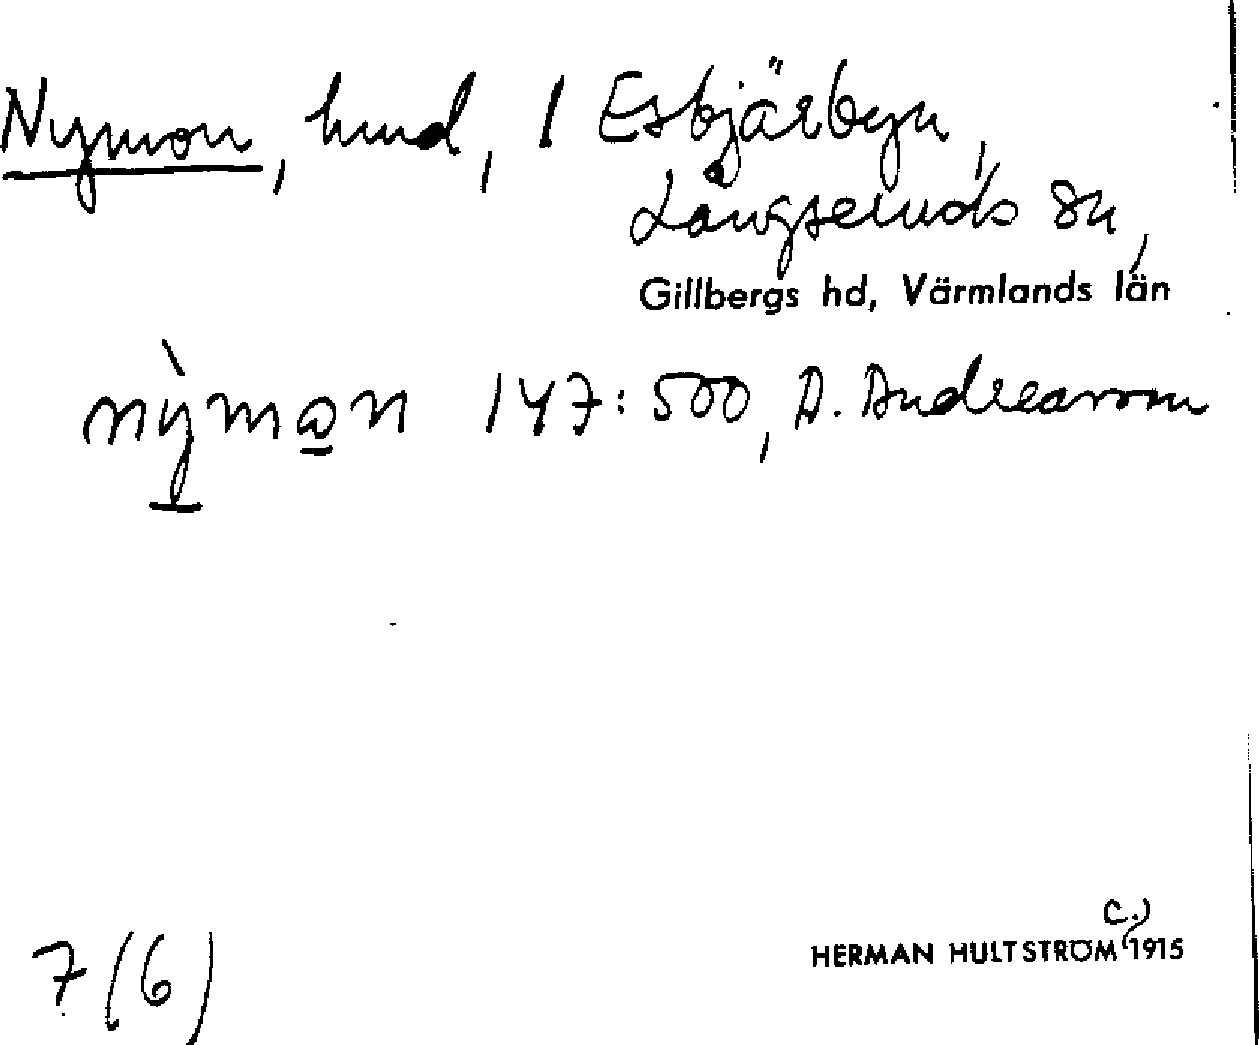 Nymon, hund, 1 Esbjärbyn,
Långseruds sn,
Gillbergs hd, Värmlands län
nỳman 147:500, A. Andreasson
7(6)
(c.)
HERMAN HULTSTRÖM 1915